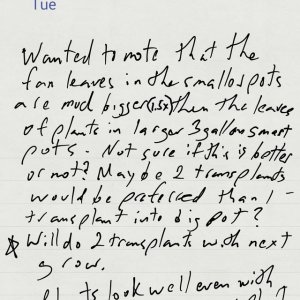 Tue
Wanted to note that the
fan leaves in the small pots
are much bigger (1.5x) then the leaves
of plants in larger 3 gallon smart
pots. Not sure if this is better
or not? Maybe 2 transplants
would be preferred than 1
transplant into big pot?
Will do 2 transplants with next
grow.
look well even with